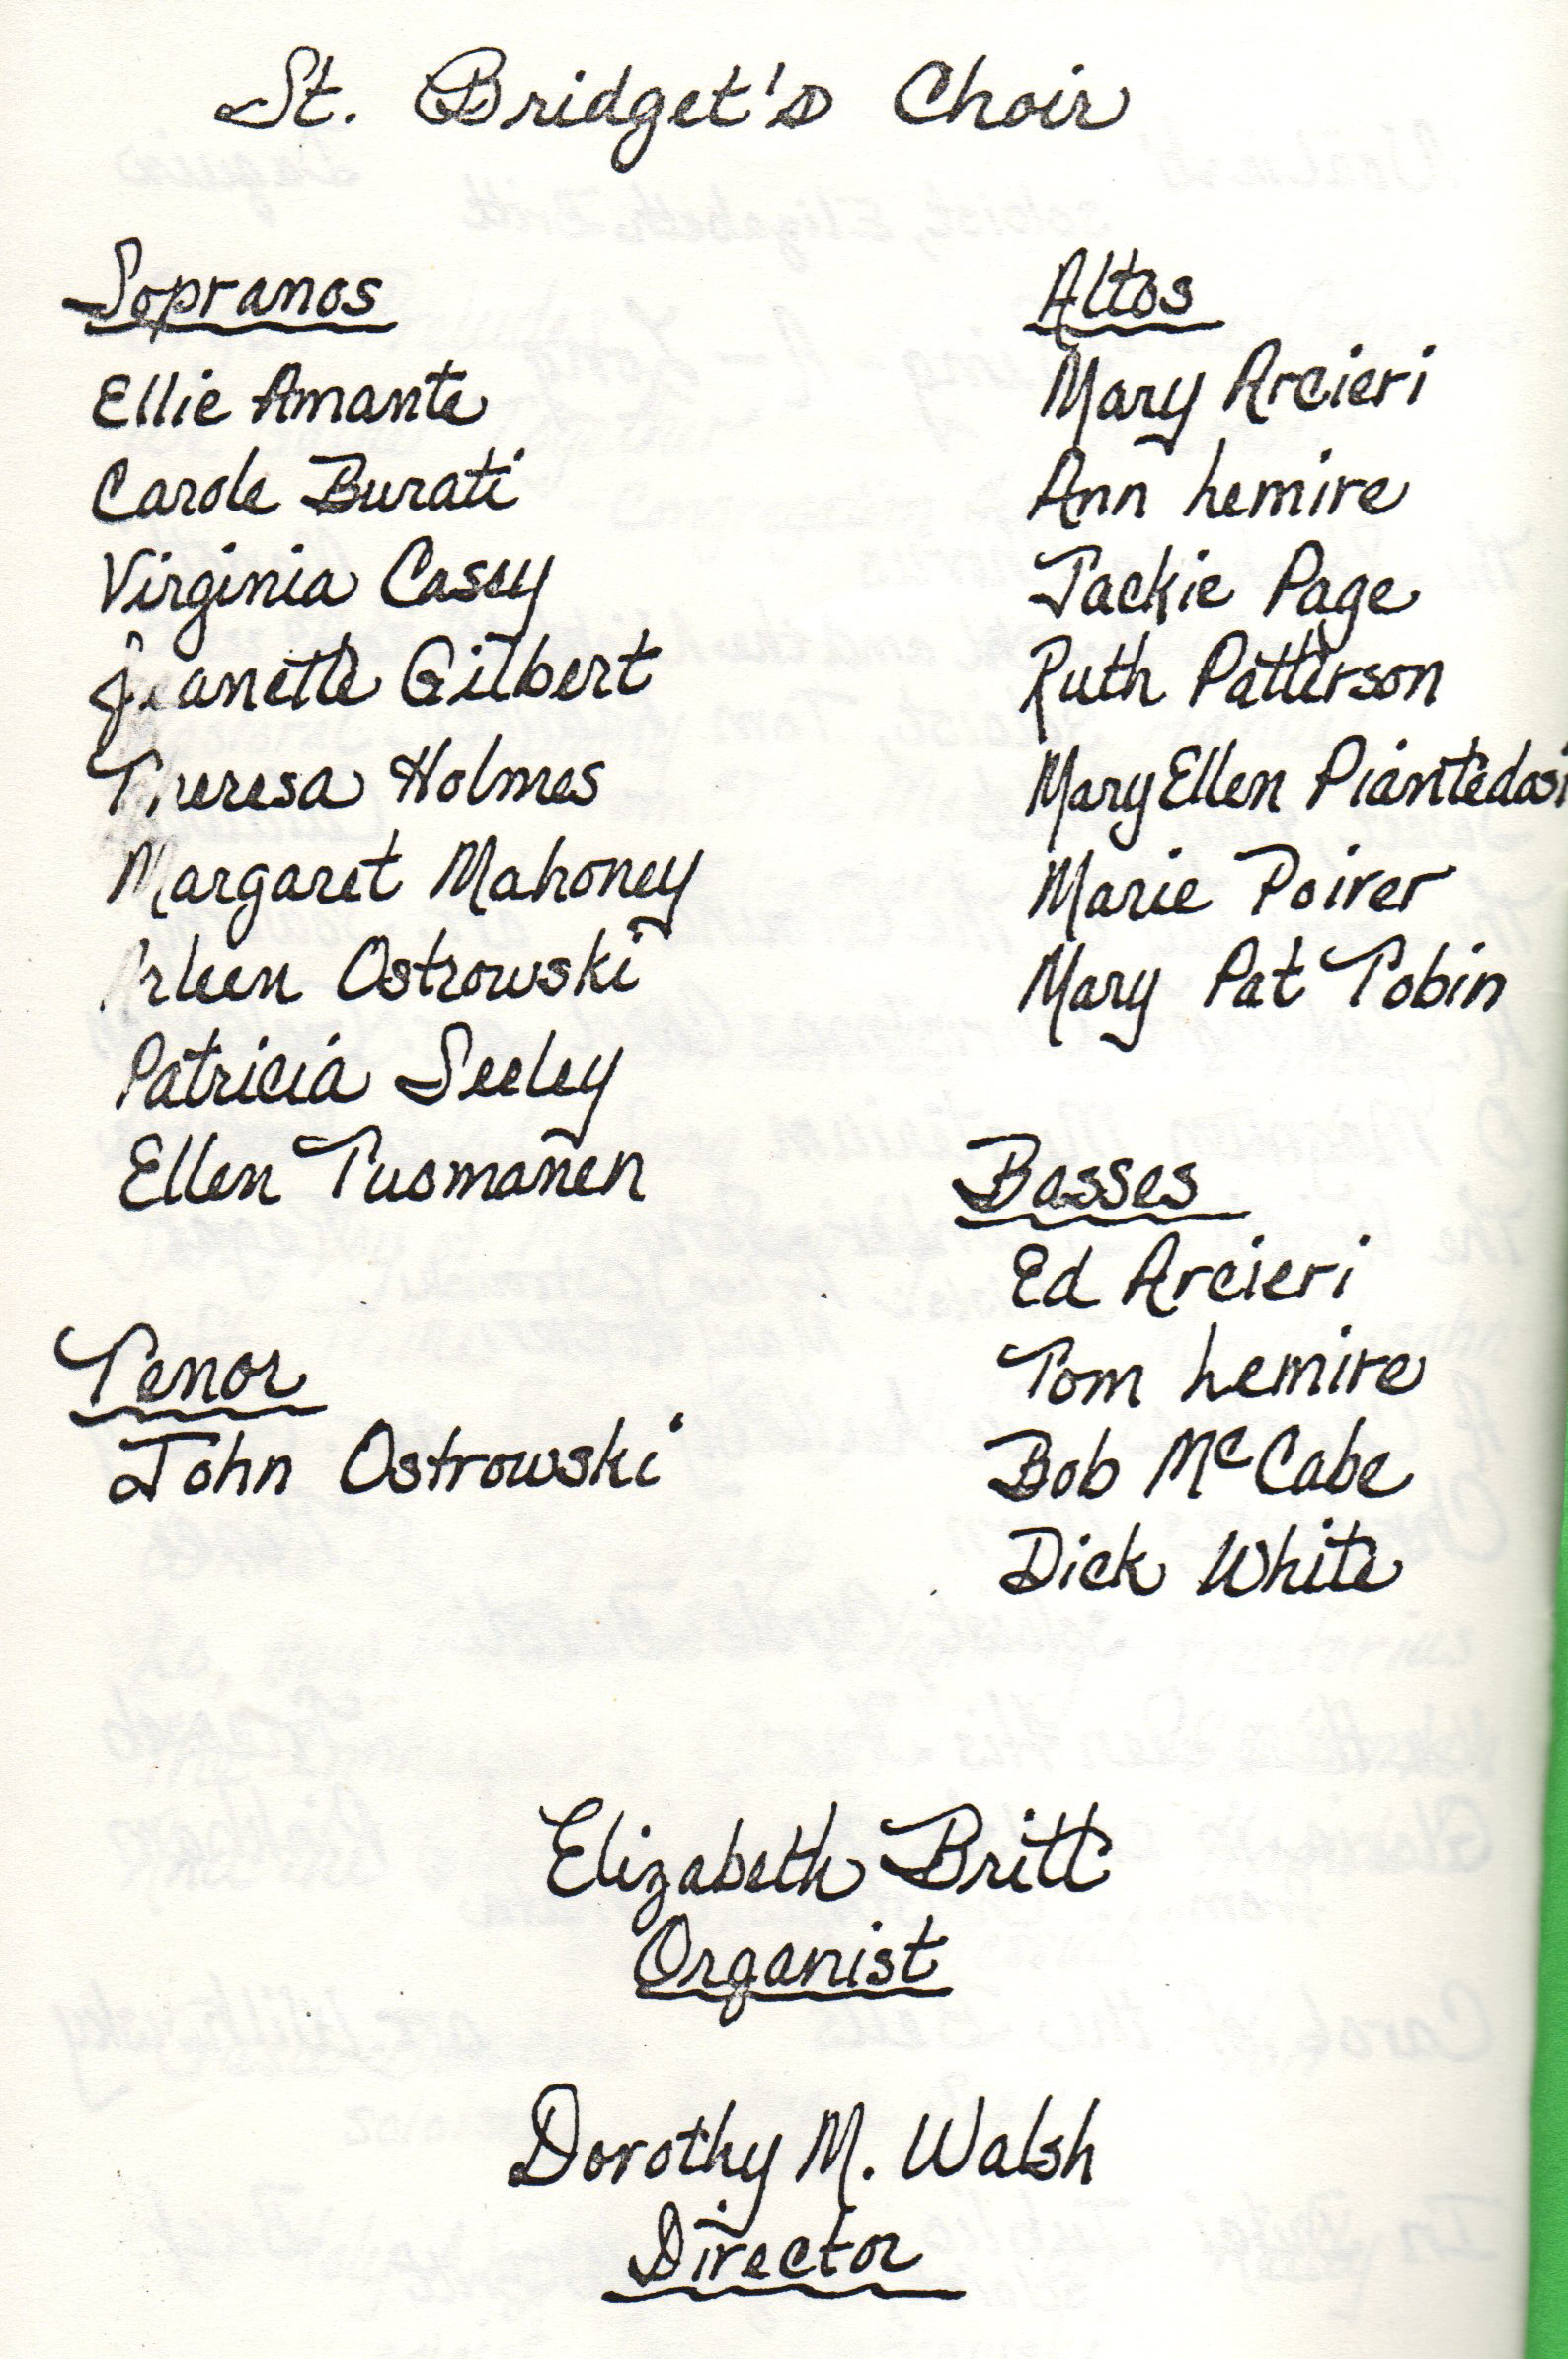 St. Bridget's Choir
Sopranos
Ellie Amante
Carole Burati
Virginia Casey
Jeanette Gilbert
Theresa Holmes
Margaret Mahoney
Arleen Ostrowski
Patricia Seeley
Ellen Tuomanen
Tenor
John Ostrowski
Altos
Mary Arcieri
Ann Lemire
Jackie Page
Ruth Patterson
Mary Ellen Piantedosi
Marie Poirer
Mary Pat Tobin
Basses
Ed Arcieri
Tom Lemire
Bob McCabe
Dick White
Elizabeth Britt
Organist
Dorothy M. Walsh
Director